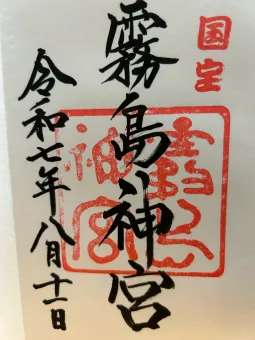 国宝
霧島神宮
令和七年八月十一日